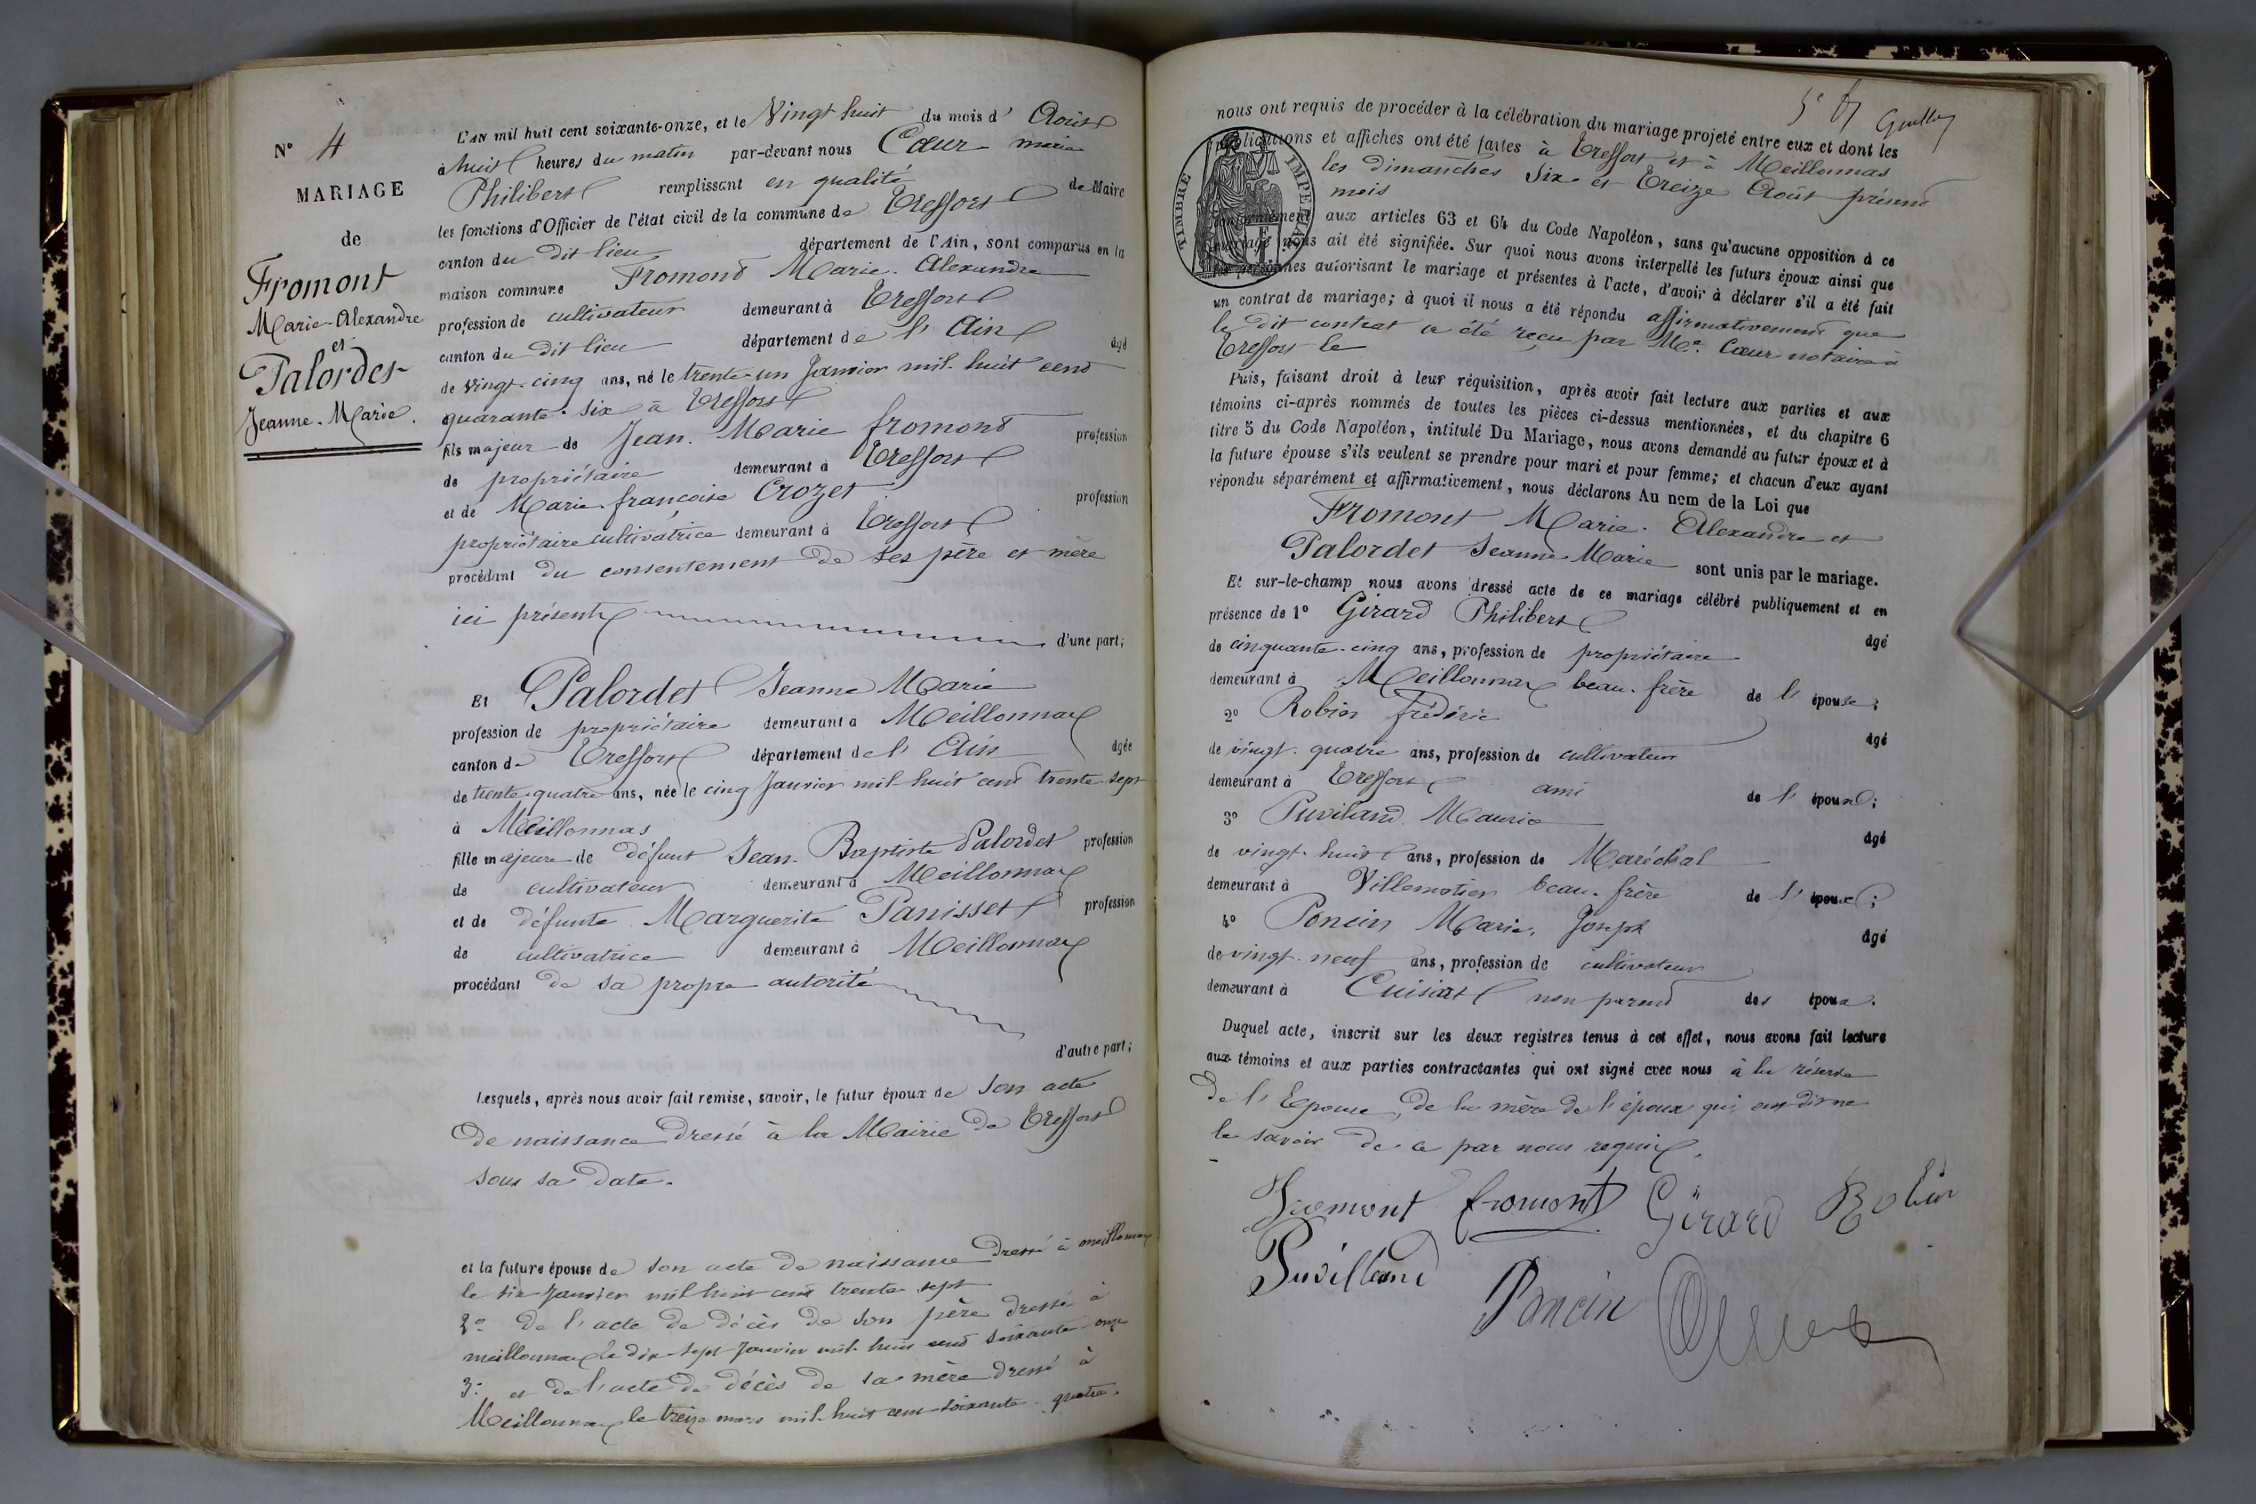 N° 4
MARIAGE
de
Fromont
Marie-Alexandre
et
Palordet
Jeanne-Marie.
L'AN mil huit cent soixante-onze, et le Vingt huit du mois d' Août
à huit heures du matin par-devant nous Cœur marie
Philibert remplissant en qualité de Maire
les fonctions d'Officier de l'état civil de la commune de Treffort
canton du dit lieu département de l'Ain, sont comparus en la
maison commune Fromont Marie-Alexandre
profession de cultivateur demeurant à Treffort
canton du dit lieu département de l'Ain âgé
de vingt-cinq ans, né le trente-un Janvier mil-huit cent
quarante-six à Treffort
fils majeur de Jean-Marie fromont profession
de propriétaire demeurant à Treffort
et de Marie-françoise Crozet profession
propriétaire cultivatrice demeurant à Treffort
procédant du consentement de ses père et mère
ici présents d'une part;
Et Palordet Jeanne Marie
profession de propriétaire demeurant à Meillonnas
canton de Treffort département de l'Ain âgée
de trente-quatre ans, née le cinq Janvier mil-huit cent trente-sept
à Meillonnas
fille majeure de défunt Jean-Baptiste Palordet profession
de cultivateur demeurant à Meillonnas
et de défunte Marguerite Panisset profession
de cultivatrice demeurant à Meillonnas
procédant de sa propre autorité
d'autre part;
Lesquels, après nous avoir fait remise, savoir, le futur époux de son acte
de naissance dressé à la Mairie de Treffort
sous sa date.
et la future épouse de son acte de naissance dressé à meillonnas
le six Janvier mil huit cent trente sept
2° de l'acte de décès de son père dressé à
meillonnas le dix-sept Janvier mil-huit cent soixante-onze
3° et de l'acte de décès de sa mère dressé à
Meillonnas le treize mars mil-huit cent-soixante-quatre.
nous ont requis de procéder à la célébration du mariage projeté entre eux et dont les
publications et affiches ont été faites à Treffort et à Meillonnas
les dimanches Six et Treize Août présent
mois
TIMBRE IMPERIAL
conformément aux articles 63 et 64 du Code Napoléon, sans qu'aucune opposition à ce
mariage nous ait été signifiée. Sur quoi nous avons interpellé les futurs époux ainsi que
les personnes autorisant le mariage et présentes à l'acte, d'avoir à déclarer s'il a été fait
un contrat de mariage; à quoi il nous a été répondu affirmativement que
le dit contrat a été reçu par Me. Cœur notaire à
Treffort le
Puis, faisant droit à leur réquisition, après avoir fait lecture aux parties et aux
témoins ci-après nommés de toutes les pièces ci-dessus mentionnées, et du chapitre 6
titre 5 du Code Napoléon, intitulé Du Mariage, nous avons demandé au futur époux et à
la future épouse s'ils veulent se prendre pour mari et pour femme; et chacun d'eux ayant
répondu séparément et affirmativement, nous déclarons Au nom de la Loi que
Fromont Marie-Alexandre et
Palordet Jeanne-Marie sont unis par le mariage.
Et sur-le-champ nous avons dressé acte de ce mariage célébré publiquement et en
présence de 1° Girard Philibert âgé
de cinquante-cinq ans, profession de propriétaire
demeurant à Meillonnas beau-frère de l'épouse;
2° Robin frédéric âgé
de vingt-quatre ans, profession de cultivateur
demeurant à Treffort ami de l'époux;
3° Puviland Maurice âgé
de vingt-huit ans, profession de Maréchal
demeurant à Villemotier beau-frère de l'époux;
4° Poncin Marie-Joseph âgé
de vingt-neuf ans, profession de cultivateur
demeurant à Cuisiat non parent des époux.
Duquel acte, inscrit sur les deux registres tenus à cet effet, nous avons fait lecture
aux témoins et aux parties contractantes qui ont signé avec nous à la réserve
de l'Epouse, de la mère de l'époux qui ont dit ne
le savoir de ce par nous requis.
Fromont fromont Girard Robin
Puvilland
Poncin